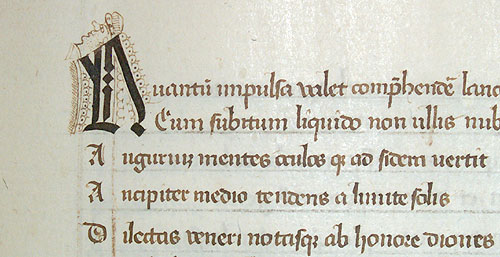 Quantū impulsa valet comp̄hendē lanc
Cum subitum liquido non ullis nub
Auguriuꝫ mentes oculos qꝫ ad sidera vertit
Ancipiter medio tendens a limite solis
Dilectas veneri notasqꝫ ab honore diones